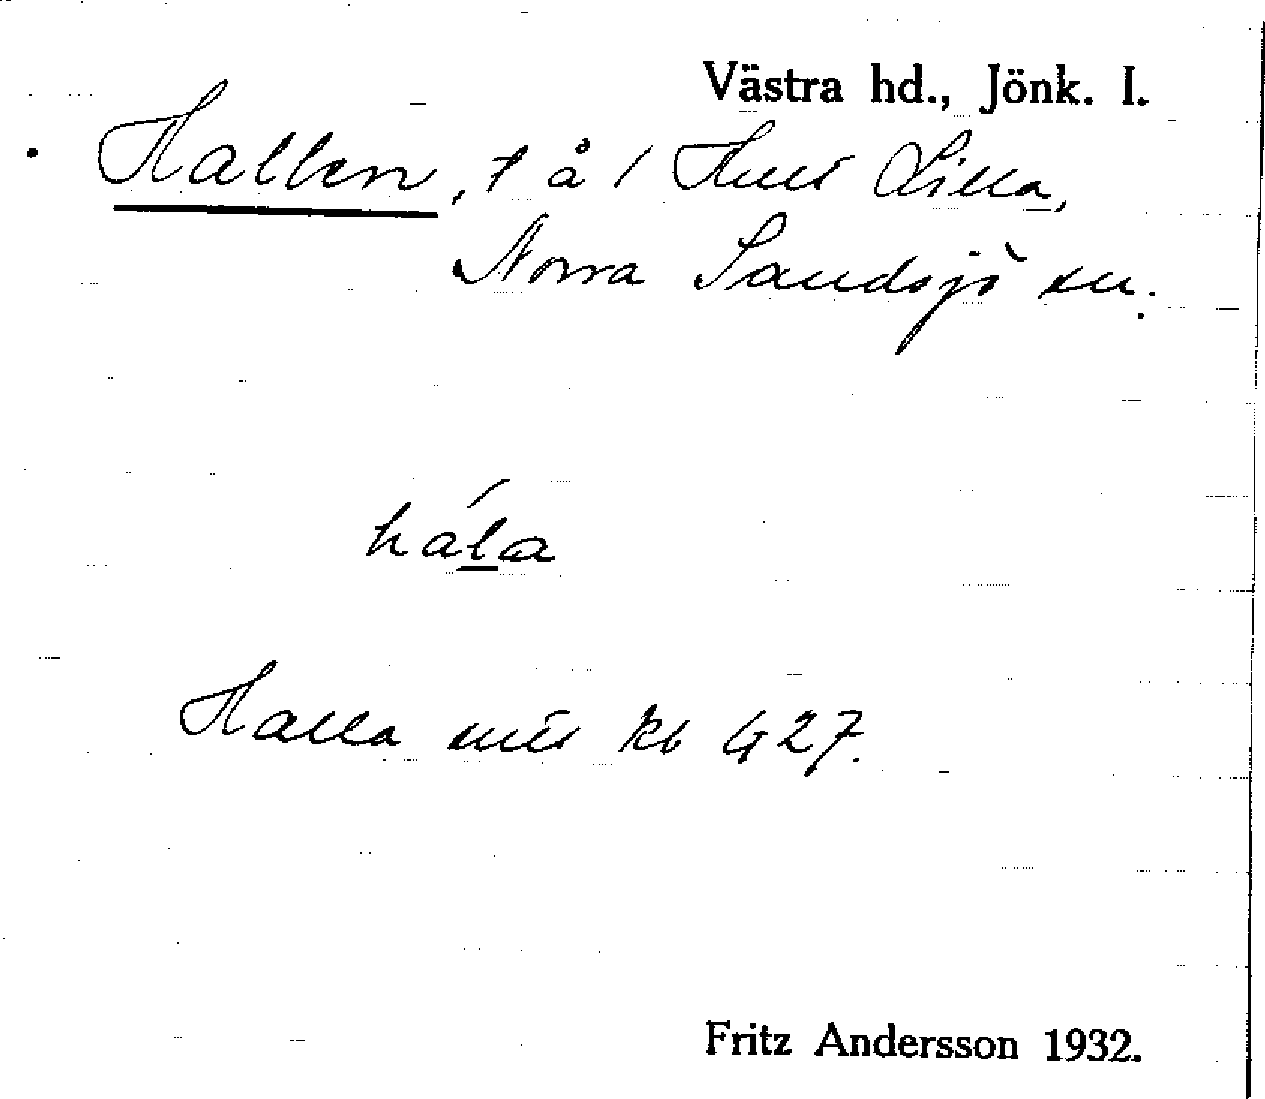 Västra hd., Jönk. l.
Hallen, t å 1 Hult Lilla,
Norra Sandsjö sn.
hála
Halla kb 427.
Fritz Andersson 1932.